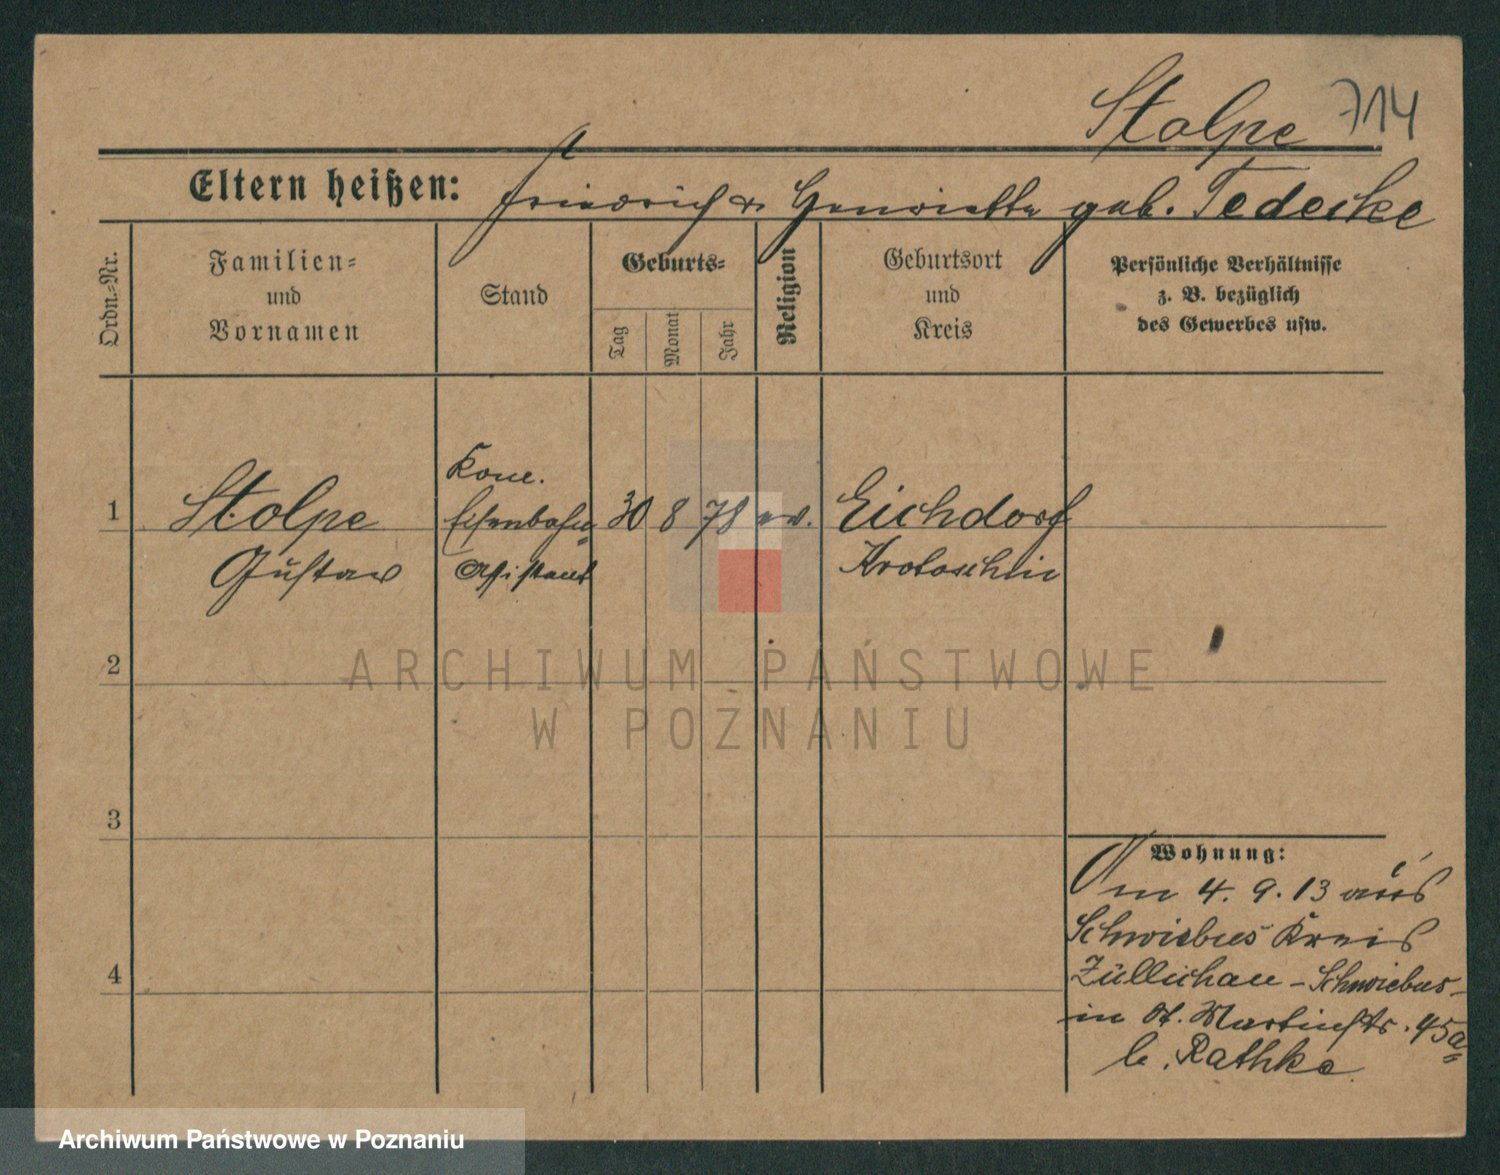 Stolpe 714
Eltern heißen: Friedrich u. Henriette geb. Tedecke
Ordn.=Nr.
Familien=
und
Vornamen
Stand
Geburts=
Tag
Monat
Jahr
Religion
Geburtsort
und
Kreis
Persönliche Verhältnisse
z. B. bezüglich
des Gewerbes usw.
1
Stolpe
Gustav
Eisenbahn
Assistent
30 8 78 ev.
Eichdorf
Krotoschin
2
3
4
Wohnung:
Am 4. 9. 13 aus
Schwiebus Kreis
Züllichau – Schwiebus –
in St. Martinstr. 45a
b. Rathke
ARCHIWUM PAŃSTWOWE
W POZNANIU
Archiwum Państwowe w Poznaniu